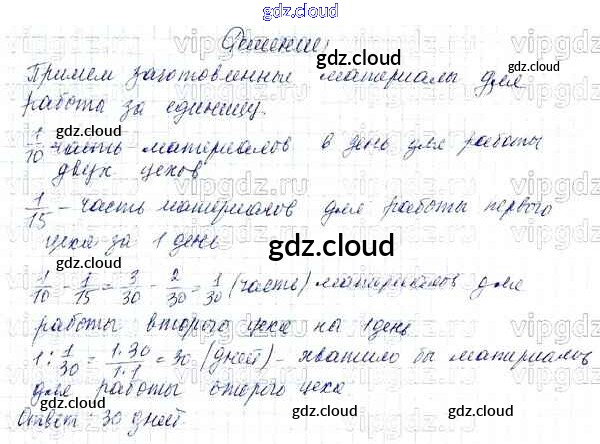 gdz.cloud
Решение,
Примем заготовленные материалы для
работы за единицу.
1/10 часть материалов в день для работы
двух цехов
1/15 - часть материалов для работы первого
цеха за 1 день
1/10 - 1/15 = 3/30 - 2/30 = 1/30 (часть) материалов для
работы второго цеха на 1 день
1 : 1/30 = 1·30/1·1 = 30 (дней) - хватило бы материалов
для работы второго цеха
Ответ: 30 дней.